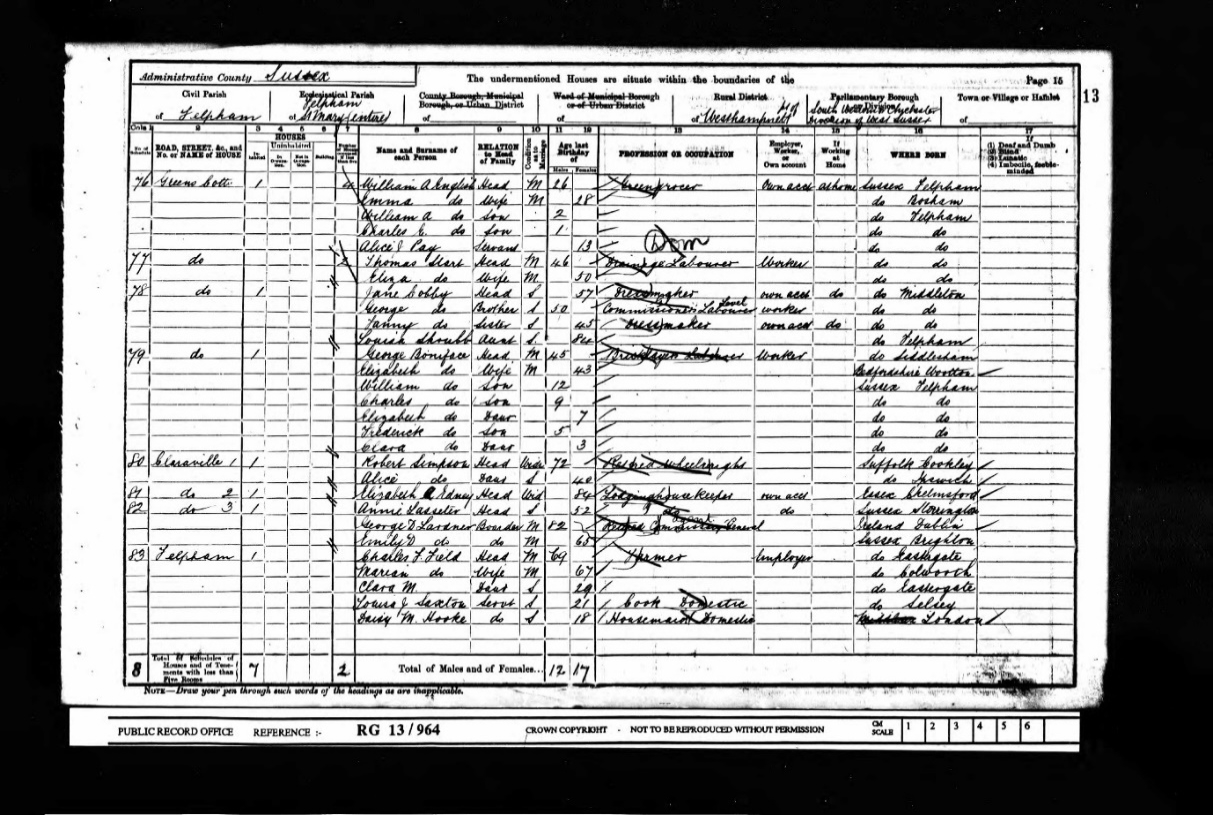 Administrative County Sussex
The undermentioned Houses are situate within the boundaries of the
Page 15
13
Civil Parish
of Felpham
Ecclesiastical Parish
Felpham
of St Mary (entire)
County Borough, Municipal Borough, or Urban District
of
Ward of Municipal Borough or of Urban District
of
Rural District
of Westhampnett
Parliamentary Borough or Division
of South Western or Chichester Division of West Sussex
Town or Village or Hamlet
of
Cols 1 2 3 4 5 6 7 8 9 10 11 12 13 14 15 16 17
No. of Schedule
ROAD, STREET, &c., and No. or NAME of HOUSE
HOUSES
Inhabited
Uninhabited
In Occupation
Not in Occupation
Building
Name and Surname of each Person
RELATION to Head of Family
Condition as to Marriage
Age last Birthday of
Males Females
PROFESSION OR OCCUPATION
Employer, Worker, or Own account
If Working at Home
WHERE BORN
(1) Deaf and Dumb
(2) Blind
(3) Lunatic
(4) Imbecile, feeble-minded
76 Greens Cotts 1 4 William A English Head M 26 Greengrocer own acct at home Sussex Felpham
Emma do Wife M 28 do Bosham
William A do Son 2 do Felpham
Charles E. do Son 1 do do
Alice J Pay Servant 13 Dom do do
77 do 2 Thomas Start Head M 46 Drainage Labourer Worker do do
Eliza do Wife M 50 do do
78 do 1 Jane Cobby Head S 57 Dressmaker own acct do do Middleton
George do Brother S 50 Commissioners Level Labourer worker do do
Fanny do Sister S 45 Dressmaker own acct do do do
Louisa Shrubb Aunt S 84 do Felpham
79 do 1 George Boniface Head M 45 Bricklayers Labourer Worker do Siddlesham
Elizabeth do Wife M 43 Bedfordshire Wootton
William do Son 12 Sussex Felpham
Charles do Son 9 do do
Elizabeth do Daur 7 do do
Frederick do Son 5 do do
Clara do Daur 3 do do
80 Claraville 1 1 Robert Simpson Head Widr 72 Retired Wheelwright Suffolk Cookley
Alice do Daur S 40 do Ipswich
81 do 2 1 Elizabeth A Head Wid 84 Lodginghouse Keeper own acct Essex Chelmsford
82 do 3 1 Annie Lasseter Head S 52 do do Sussex Storrington
George D. Lardner Boarder M 82 Retired Commissary General Ireland Dublin
Emily D do do M 65 Sussex Brighton
83 Felpham 1 Charles F. Field Head M 69 Farmer Employer do Eastergate
Marian do Wife M 67 do Colworth
Clara M. Daur S 29 do Eastergate
Louisa J Saxton Servt S 21 Cook Domestic do Selsey
Daisy M. Hooke do S 18 Housemaid Domestic London
8 Total of Schedules of Houses and of Tenements with less than Five Rooms 7 2 Total of Males and of Females... 12 17
NOTE—Draw your pen through such words of the headings as are inapplicable.
PUBLIC RECORD OFFICE REFERENCE :- RG 13 / 964 CROWN COPYRIGHT - NOT TO BE REPRODUCED WITHOUT PERMISSION CM SCALE 1 2 3 4 5 6